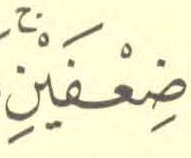 ضِعْفَيْنِۚ